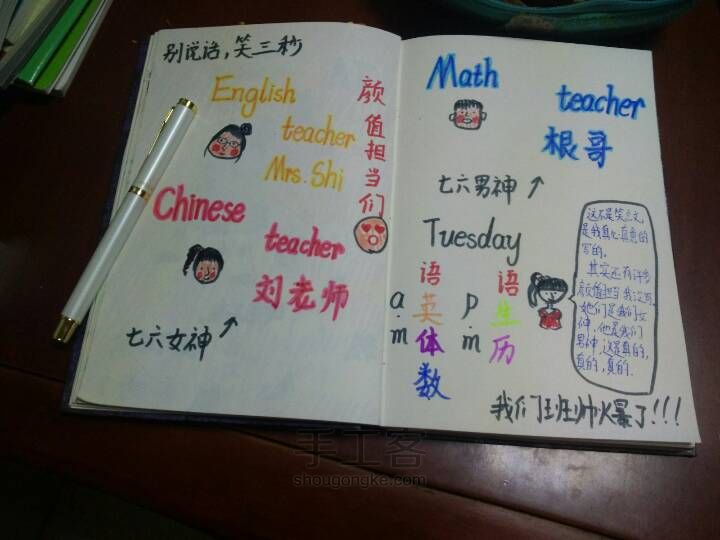 别说话，笑三秒
English
teacher
Mrs. Shi
颜值担当们
Chinese
teacher
刘老师
七六女神↗
Math
teacher
根哥
七六男神↗
Tuesday
a.m
语英体数
p.m
语生历
是我真心真意的
写的。
其实还有许多
颜值担当我没写
她们是我们女
神，他是我们
男神，这是真的，
真的，真的.
我们班帅火暴了!!!
手工客
shougongke.com